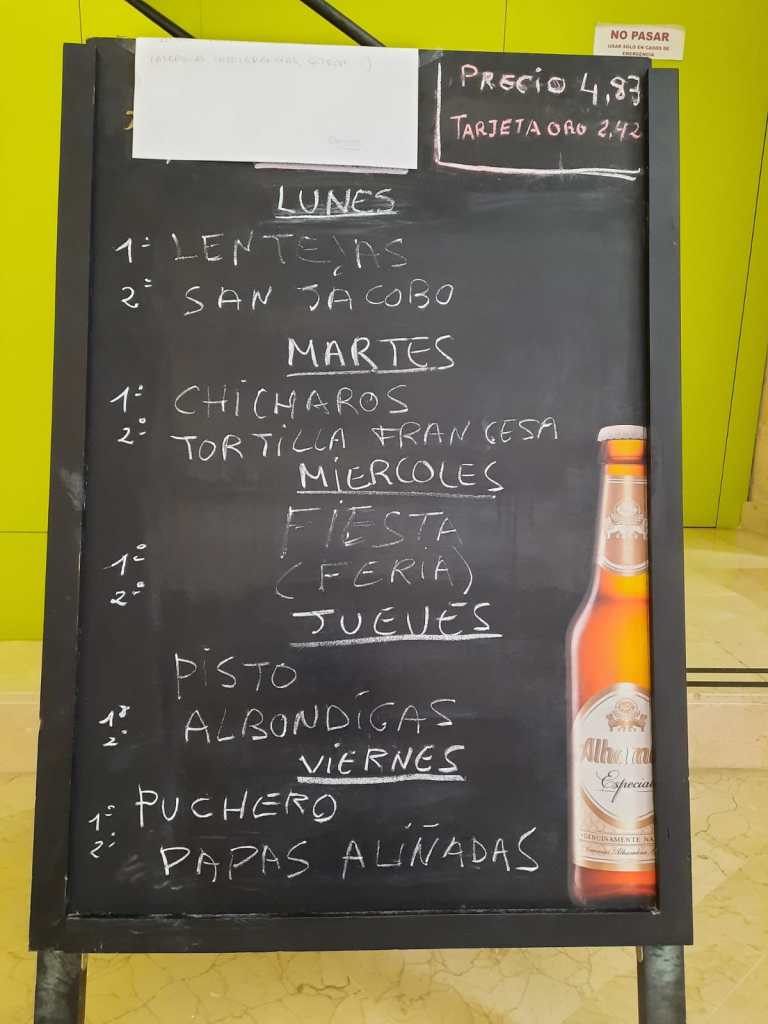 NO PASAR
USAR SOLO EN CASOS DE
EMERGENCIA
PRECIO 4,83
TARJETA ORO 2,42
LUNES
1º LENTEJAS
2º SAN JACOBO
MARTES
1º CHICHAROS
2º TORTILLA FRANCESA
MIERCOLES
FIESTA
1º (FERIA)
2º
JUEVES
PISTO
1º ALBONDIGAS
2º
VIERNES
1º PUCHERO
2º PAPAS ALIÑADAS
Alham
Especial
GENUINAMENTE NA